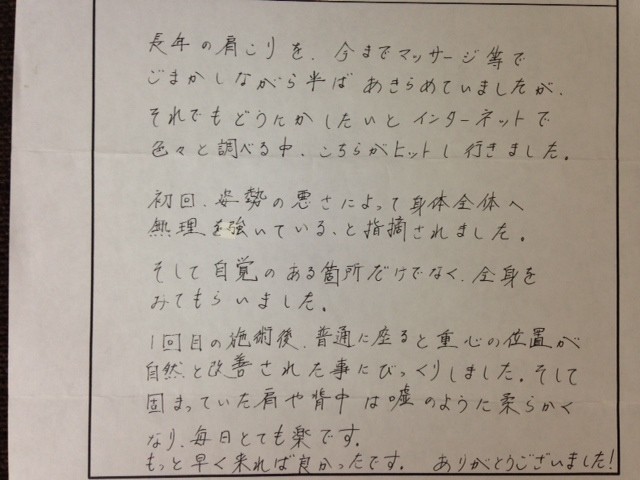 長年の肩こりを、今までマッサージ等で
ごまかしながら半ばあきらめていましたが、
それでもどうにかしたいとインターネットで
色々と調べる中、こちらがヒットし行きました。
初回、姿勢の悪さによって身体全体へ
無理を強いている、と指摘されました。
そして自覚のある箇所だけでなく、全身を
みてもらいました。
1回目の施術後、普通に座ると重心の位置が
自然と改善された事にびっくりしました。そして
固まっていた肩や背中は嘘のように柔らかく
なり、毎日とても楽です。
もっと早く来れば良かったです。 ありがとうございました!